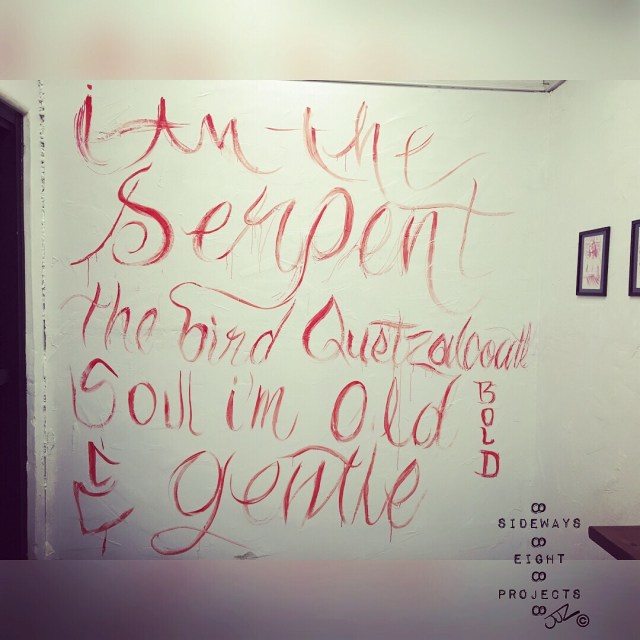 i Am the
Serpent
the bird Quetzalcoatl
Soul i'm old
BOLD
gentle
8
SIDEWAYS
8
EIGHT
8
PROJECTS
8
JJZ ©